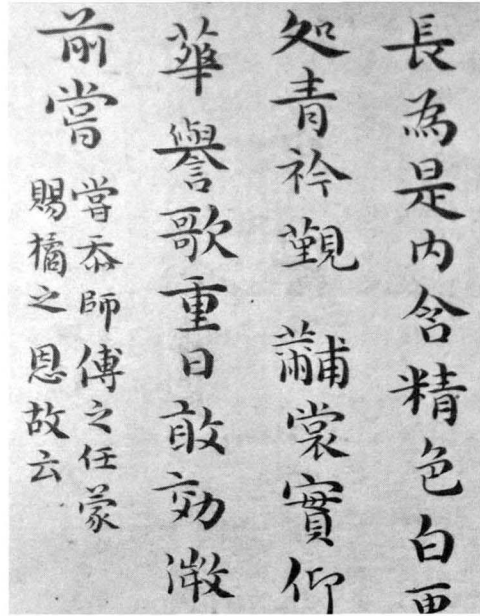 長為是内含精色白
処青衿覲黼裳實仰
華譽歌重日敢効
前嘗
嘗忝師傅之任蒙
賜橘之恩故云